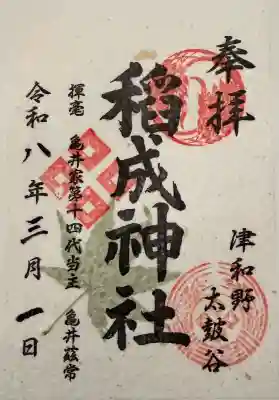 奉拝
津和野
太皷谷
稻成神社
揮毫 亀井家第十四代当主 亀井茲常
令和八年三月一日